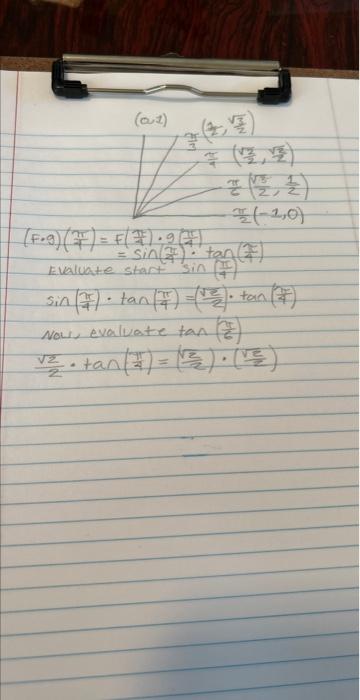 (0,1)
π/3 (1/2, √3/2)
π/4 (√2/2, √2/2)
π/6 (√3/2, 1/2)
π/2 (-1,0)
(F·g)(π/4) = F(π/4) · g(π/4)
= sin(π/4) · tan(π/4)
Evaluate start sin (π/4)
sin(π/4) · tan(π/4) = (√2/2) · tan(π/4)
Now, evaluate tan (π/6)
√2/2 · tan(π/4) = (√2/2) · (√2/2)